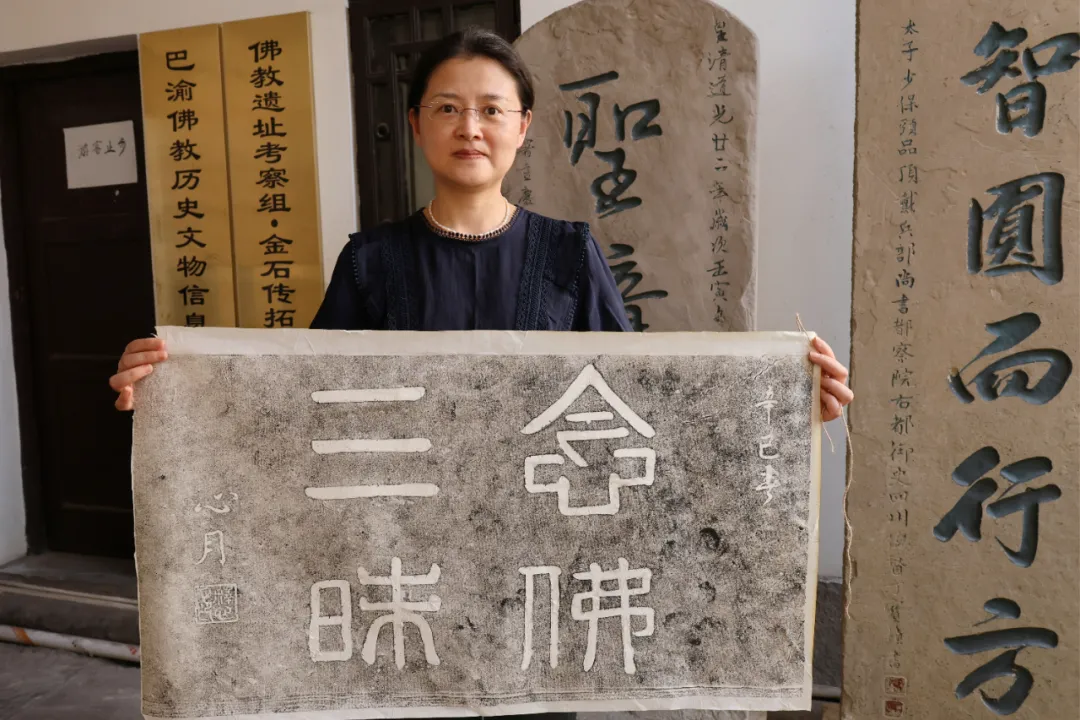 游客止步
佛教遗址考察组·金石传拓
巴渝佛教历史文物信息
皇清道光廿二年歲次壬寅
聖
智圓而行方
太子少保頭品頂戴兵部尚書都察院右都御史四川
辛巳春
念佛
三昧
心月